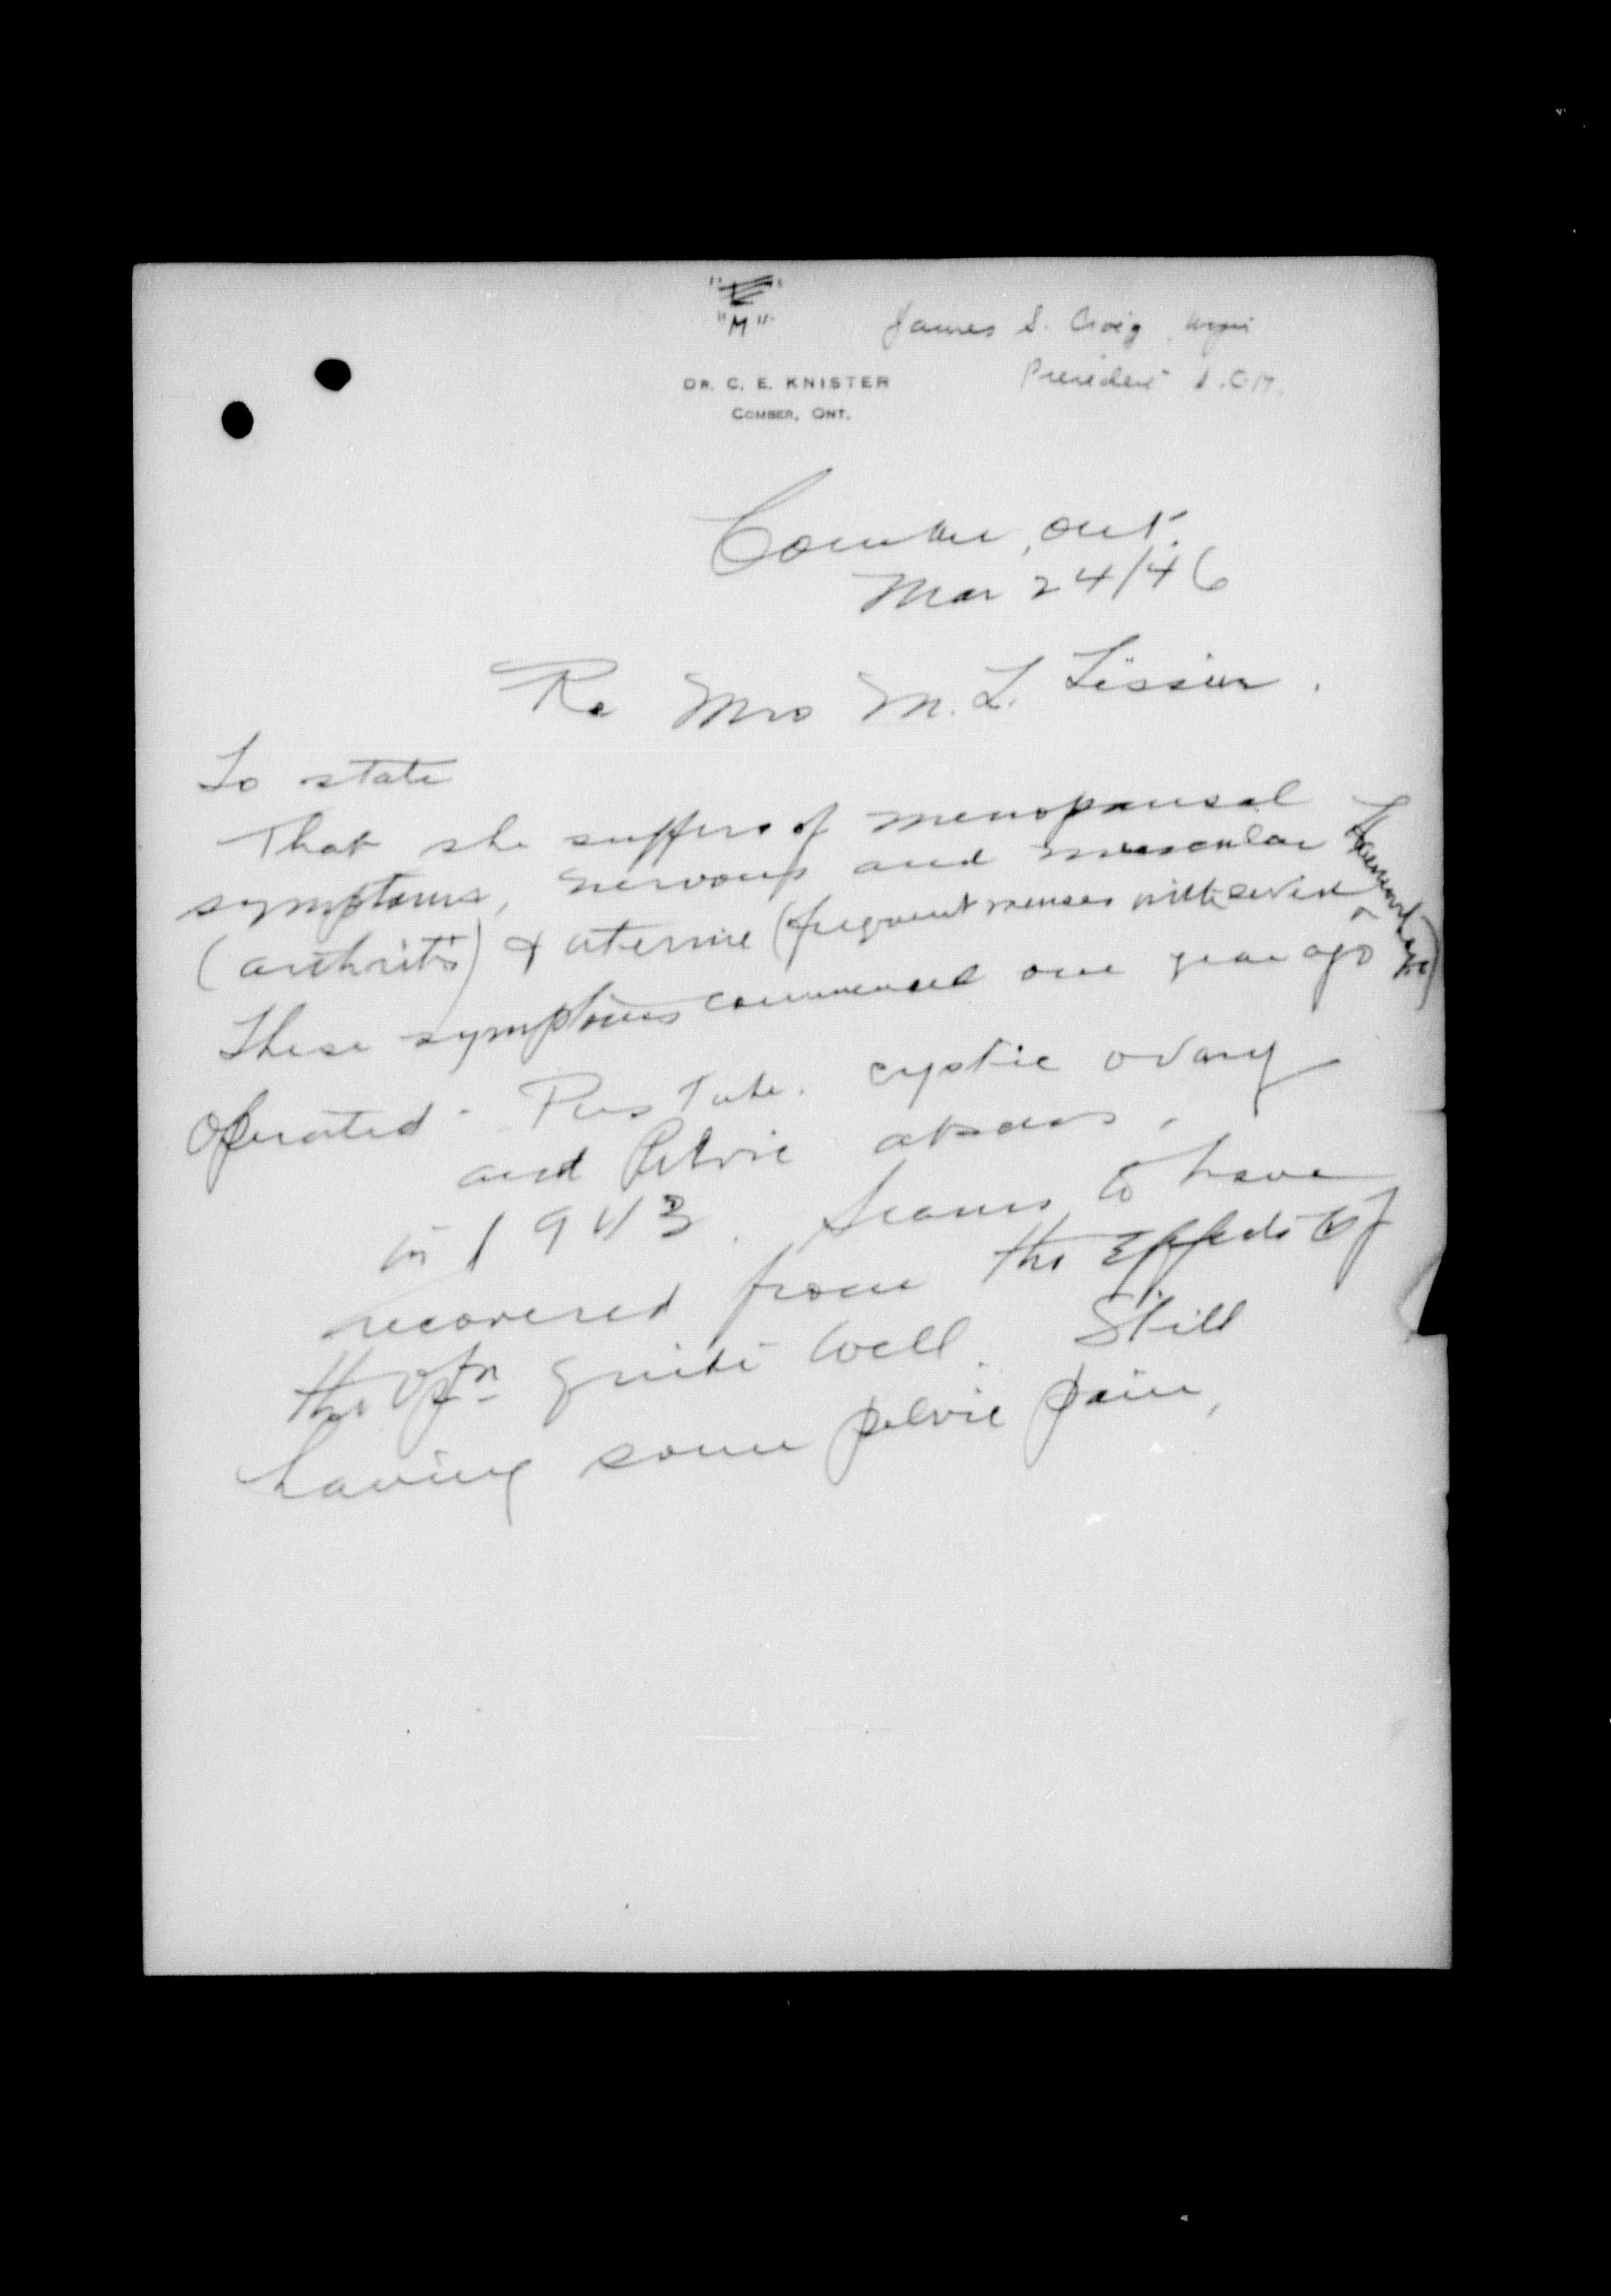 "M"
James S. Craig, Major
President S.C.M.
DR. C. E. KNISTER
COMBER, ONT.
Comber, Ont.
Mar 24/46
Re Mrs M. L.
To state
That she suffers of menopausal
symptoms, nervous and muscular
(arthritis) & uterine (frequent menses with severe Haemorrhage)
These symptoms commenced one year ago
Operated - Pus Tube. cystic ovary
and Pelvic abscess,
in 1943. Seems to have
recovered from the effects of
the Opn quite well. Still
having some pelvic pain,